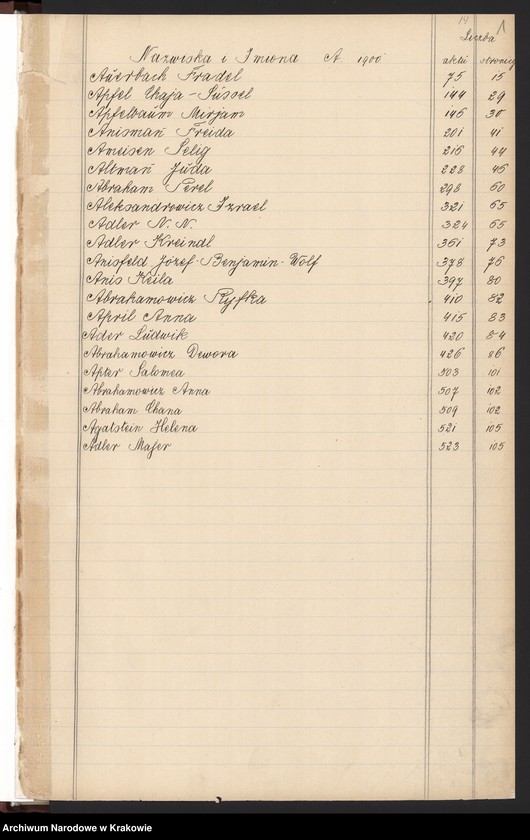 14 1
Liczba
Nazwiska i Imiona A. 1900 aktu stronicy
Auerbach Fradel 75 15
Apfel Chaja-Süssel 144 29
Apfelbaum Mirjam 146 30
Anisman Freida 201 41
Ameisen Selig 216 44
Altman Juda 228 46
Abraham Perel 298 60
Aleksandrowicz Izrael 321 65
Adler N. N. 324 65
Adler Kreindl 361 73
Anisfeld Józef-Benjamin-Wolf 378 76
Anis Keila 397 80
Abrahamowicz Ryfka 410 82
April Anna 415 83
Ader Ludwik 420 84
Abrahamowicz Dewora 426 86
Apter Salomea 503 101
Abrahamowicz Anna 507 102
Abraham Chana 509 102
Agatstein Helena 521 105
Adler Majer 523 105
Archiwum Narodowe w Krakowie